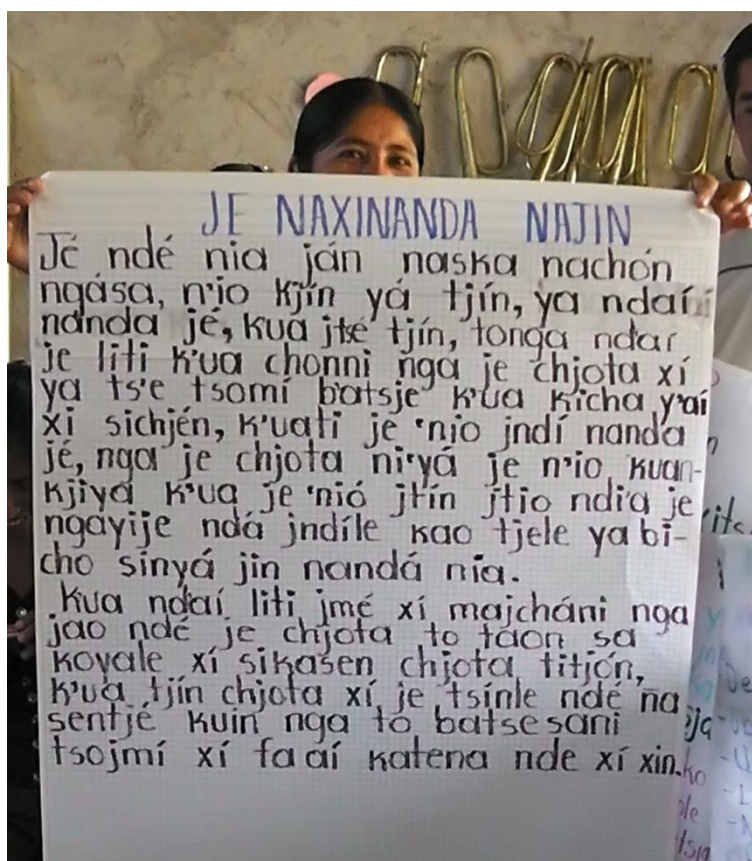 JE NAXINANDA NAJIN
Jé ndé nia ján naska nachón
ngása, n'io kjín yá tjín, ya ndaí
nanda jé, kua jtsé tjín, tonga ndai
je liti k'ua chonni nga je chjota xí
ya ts'e tsomí b'atsje k'ua kicha y'aí
xi sichjén, k'uati je 'nio jndí nanda
jé, nga je chjota ni'yá je n'io kuan-
kjiyá k'ua je 'nió jtín jtio ndi'a je
ngayije ndá jndíle kao tjele ya bi-
cho sinyá jin nandá nía.
Kua ndaí liti jmé xí majcháni nga
jao ndé je chjota to taon sa
kovale xí sikasen chjota titjón,
k'ua tjín chjota xí je tsínle ndé na
sentjé kuin nga to batsesani
tsojmí xí faaí katena nde xí xin.